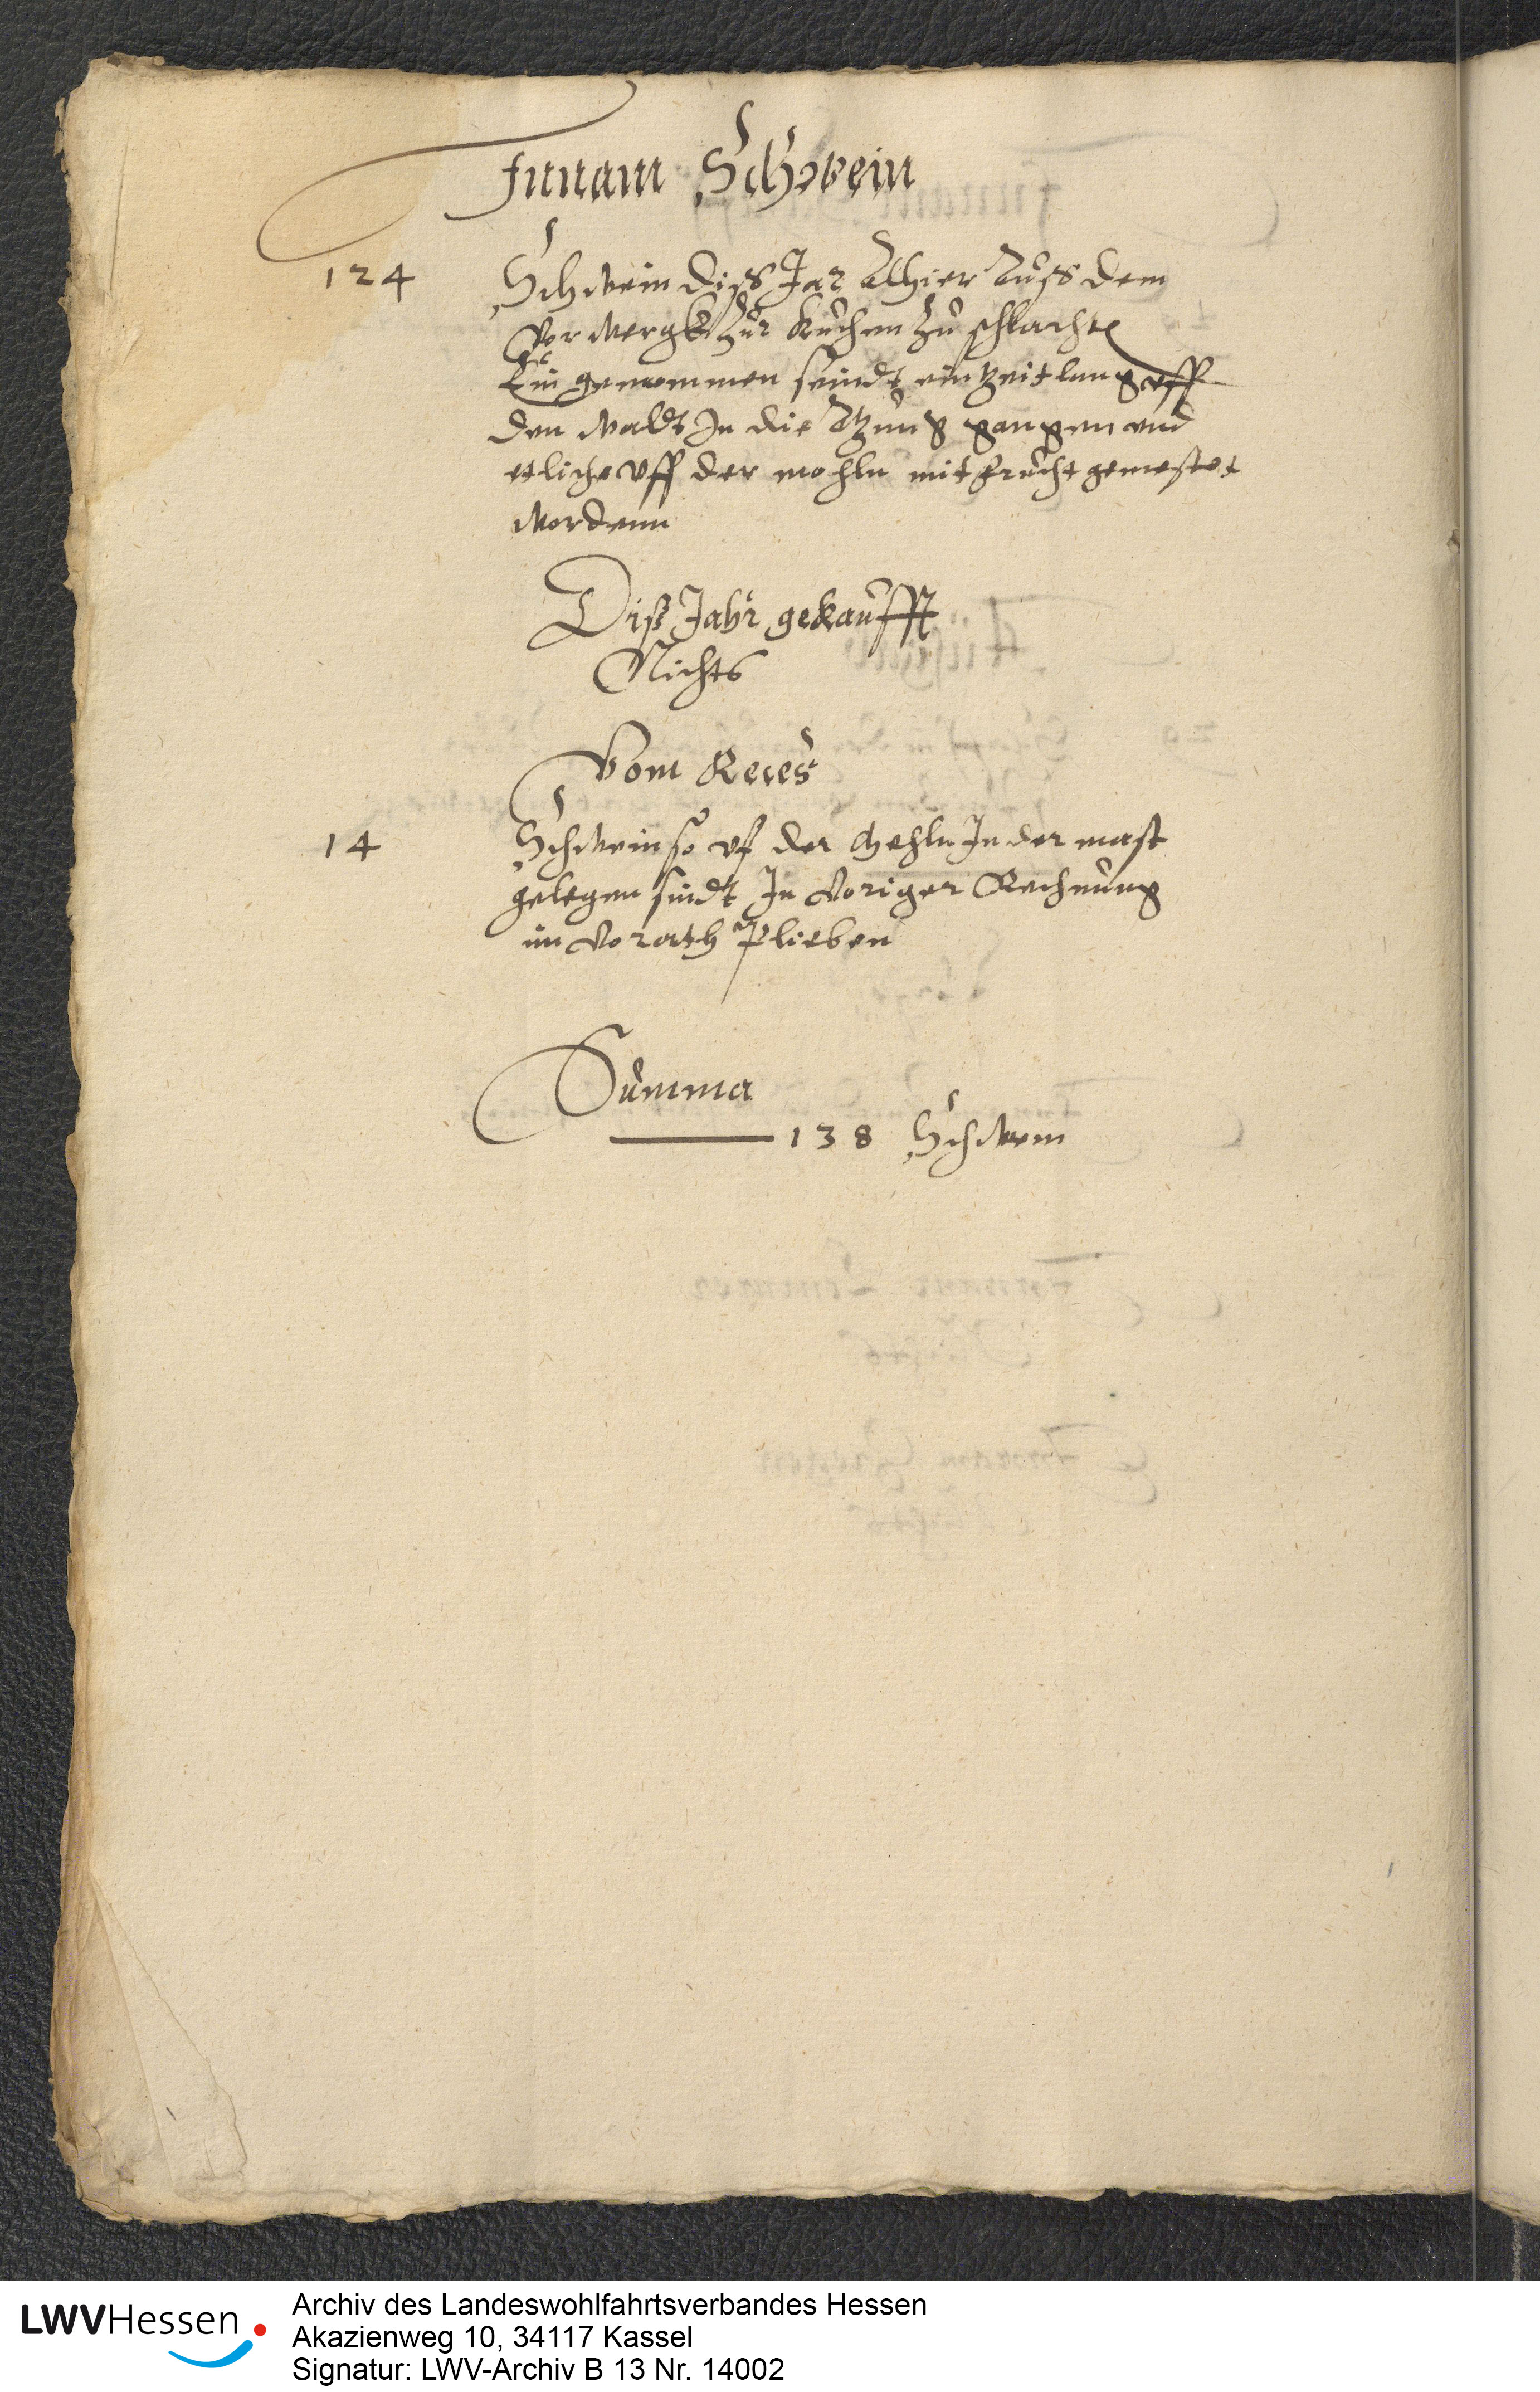 Innam Schwein
124 Schwein diß Jar Alhier Auß dem
Vorwergk Zur kuchen Zu schlachten
Ein genommen seindt ein Zeitlang uff
den waldt In die Atzung gangen und
etliche uff der mohln mit frucht gemestet
wordenn
Diß Jahr gekaufft
Nichts
Vom Reces
14 Schwein so uf der Mehln In der mast
gelegen sindt In Voriger Rechnung
im Vorath Plieben
Summa
138 Schwein
LWVHessen
Archiv des Landeswohlfahrtsverbandes Hessen
Akazienweg 10, 34117 Kassel
Signatur: LWV-Archiv B 13 Nr. 14002